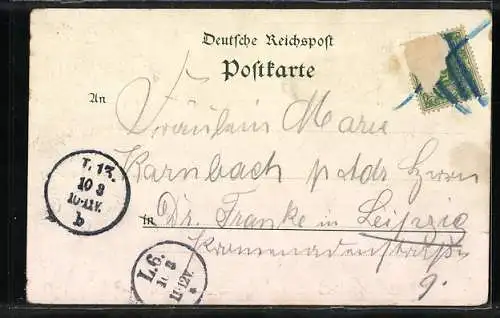 Deutsche Reichspost
Postkarte
An
Fräulein Marie
Karnbach p. Adr Herrn
in Dr. Franke in Leipzig
Promenadenstraße
9.
T. 13.
10 3
10-11V.
b
L.6.
10 3
11-12V.
*